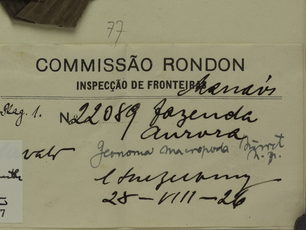 77
COMMISSÃO RONDON
INSPECÇÃO DE FRONTEIRAS
Manáos
Plag. 1. N. 22089 fazenda
aurora
Geonoma macropoda Burret
n. sp.
28-VIII-26
7